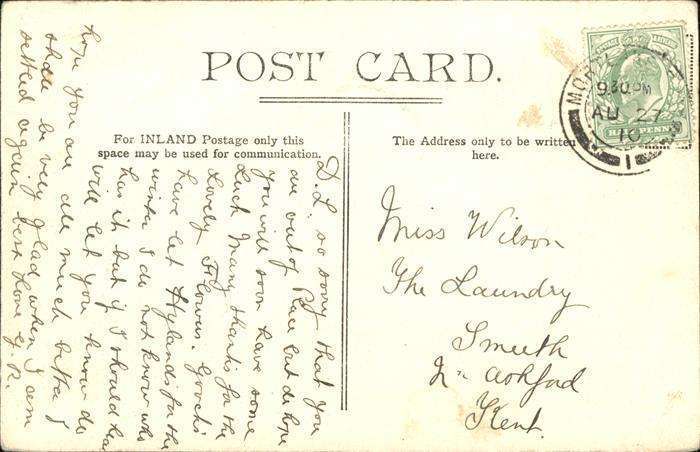 POST CARD.
For INLAND Postage only this
space may be used for communication.
The Address only to be written
here.
POSTAGE
HALF PENNY
MORTL
9.30 PM
AU 27
10
1
Miss Wilson
The Laundry
Smeeth
Nr Ashford
Kent.
D. L. so sorry that you
are out of Place but do hope
you will soon have some
Luck Many thanks for the
Lovely Flowers. Goochs
have let Hylands for the
winter I do not know who
has it but if I should hear
will let you know do
hope you are all much better I
shall be very glad when I am
settled again best Love G. R.